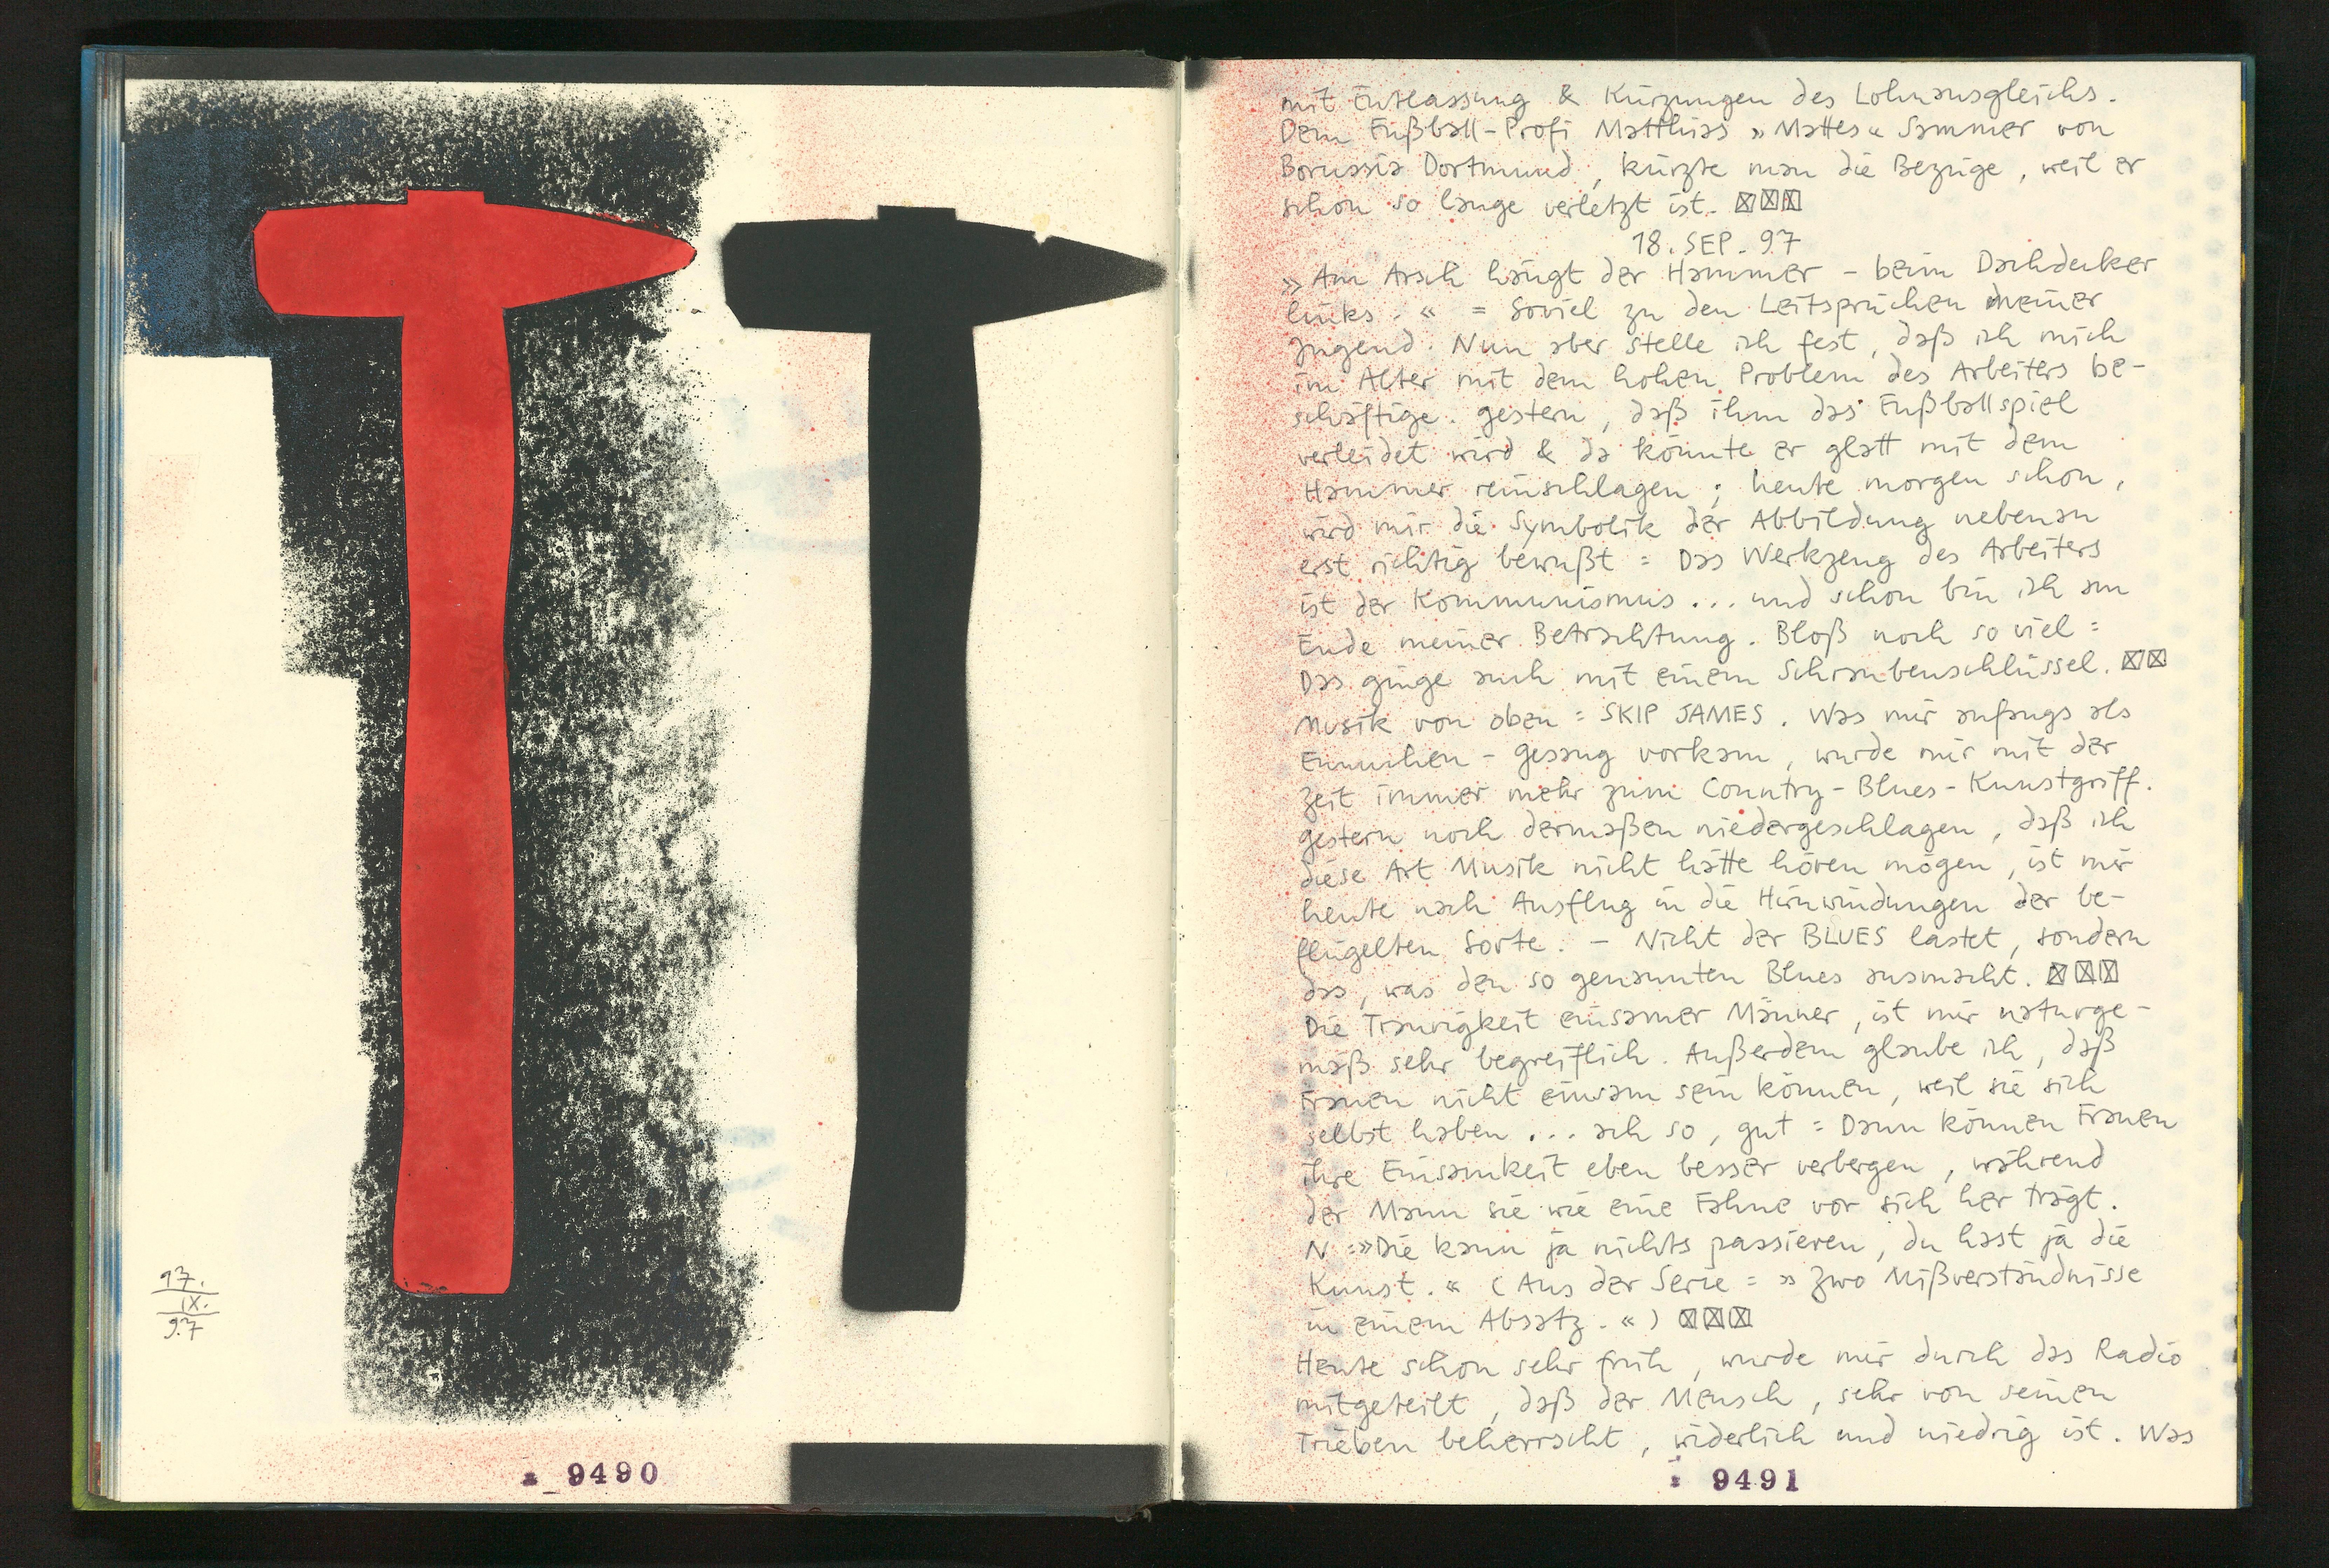 17.
IX.
97
9490
mit Entlassung & Kürzungen des Lohnausgleichs.
Dem Fußball-Profi Matthias »Mattes« Sammer von
Borussia Dortmund, kürzte man die Bezüge, weil er
schon so lange verletzt ist. ☒☒☒
18. SEP. 97
»Am Arsch hängt der Hammer – beim Dachdecker
links.« = Soviel zu den Leitsprüchen meiner
Jugend. Nun aber stelle ich fest, daß ich mich
im Alter mit dem hohen Problem des Arbeiters be-
schäftige. gestern, daß ihm das Fußballspiel
verleidet wird & da könnte er glatt mit dem
Hammer reinschlagen; heute morgen schon,
wird mir die Symbolik der Abbildung nebenan
erst richtig bewußt = Das Werkzeug des Arbeiters
ist der Kommunismus... und schon bin ich am
Ende meiner Betrachtung. Bloß noch so viel =
Das ginge auch mit einem Schraubenschlüssel. ☒☒
Musik von oben = SKIP JAMES. Was mir anfangs als
Eunuchen-gesang vorkam, wurde mir mit der
Zeit immer mehr zum Country-Blues-Kunstgriff.
gestern noch dermaßen niedergeschlagen, daß ich
diese Art Musik nicht hätte hören mögen, ist mir
heute nach Ausflug in die Hirnwindungen der be-
flügelten Sorte. – Nicht der BLUES lastet, sondern
das, was den so genannten Blues ausmacht. ☒☒☒
Die Traurigkeit einsamer Männer, ist mir naturge-
mäß sehr begreiflich. Außerdem glaube ich, daß
Frauen nicht einsam sein können, weil sie sich
selbst haben... ach so, gut = Dann können Frauen
ihre Einsamkeit eben besser verbergen, während
der Mann sie wie eine Fahne vor sich her trägt.
N =»Die kann ja nichts passieren, du hast ja die
Kunst.« (Aus der Serie = »Zwo Mißverständnisse
in einem Absatz.«) ☒☒☒
Heute schon sehr früh, wurde mir durch das Radio
mitgeteilt, daß der Mensch, sehr von seinen
Trieben beherrscht, widerlich und niedrig ist. Was
9491